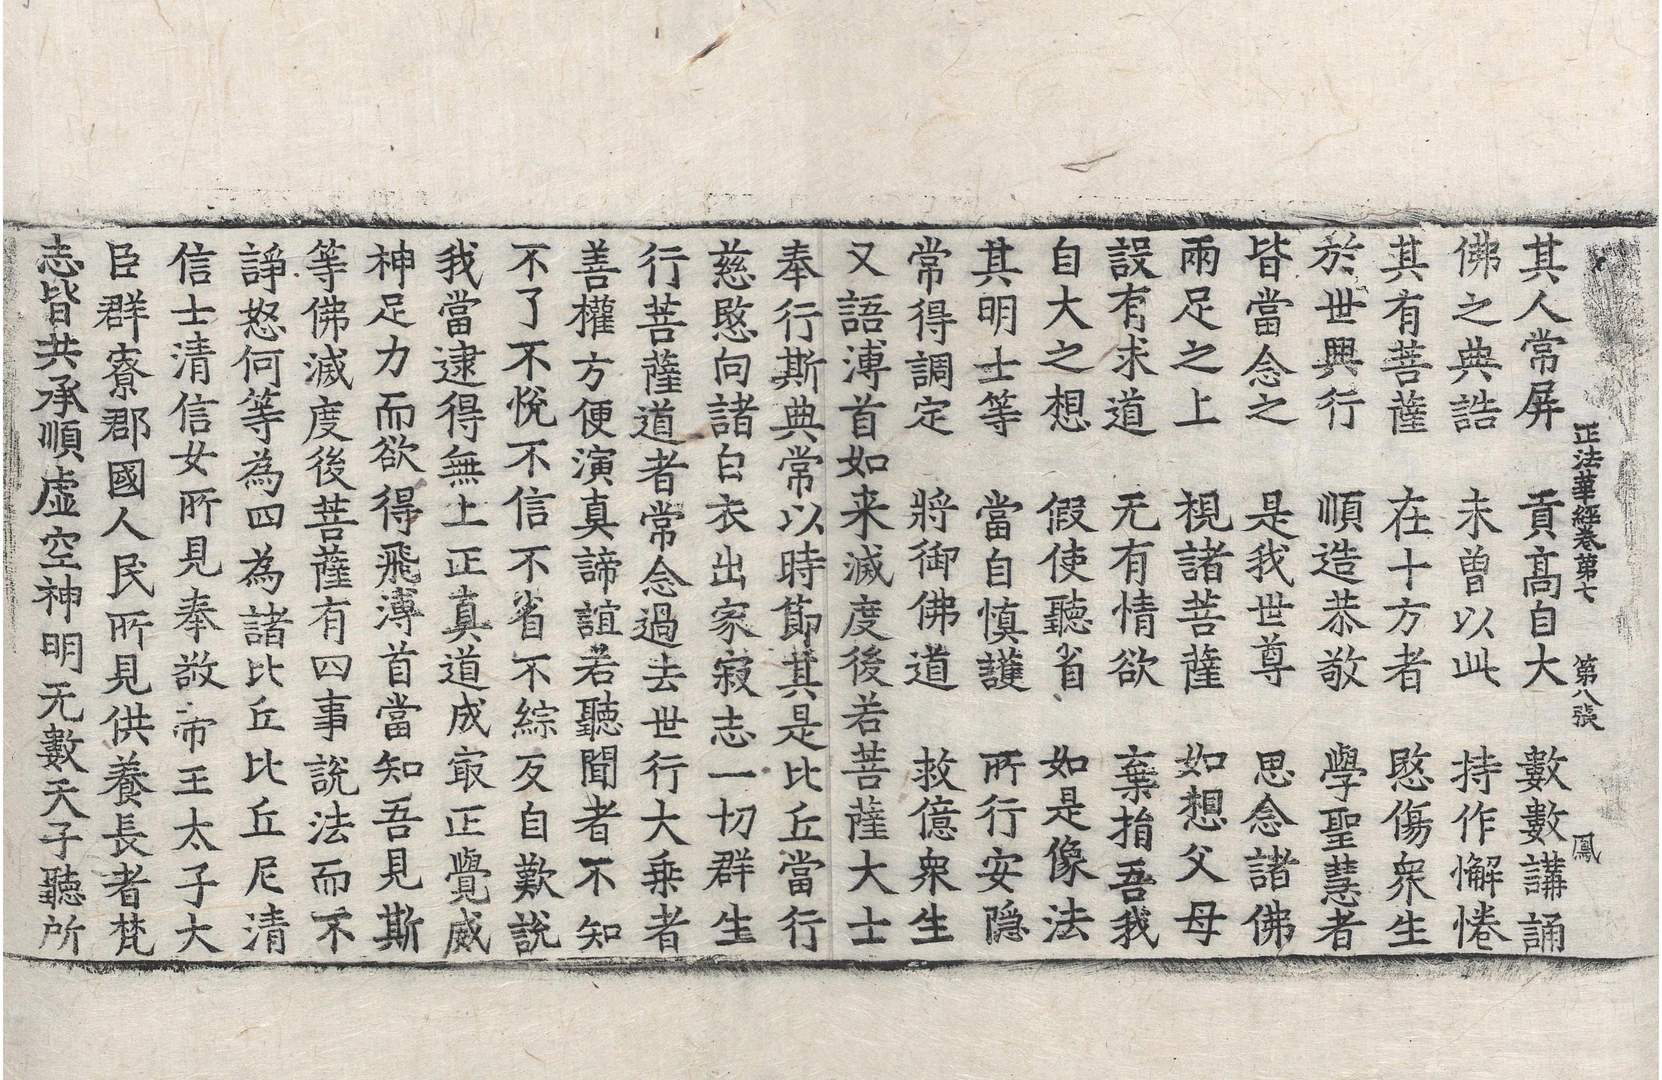 正法華經卷第七 第八張 鳳
其人常屏 貢高自大 數數講誦
佛之典誥 未曾以此 持作懈惓
其有菩薩 在十方者 愍傷衆生
於世興行 順造恭敬 學聖慧者
皆當念之 是我世尊 思念諸佛
兩足之上 視諸菩薩 如想父母
設有求道 无有情欲 棄捐吾我
自大之想 假使聽省 如是像法
其明士等 當自慎護 所行安隐
常得調定 將御佛道 救億衆生
又語溥首如来滅度後若菩薩大士
奉行斯典常以時節其是比丘當行
慈愍向諸白衣出家寂志一切群生
行菩薩道者常念過去世行大乗者
善權方便演真諦誼若聽聞者不知
不了不悅不信不省不綜反自歎說
我當逮得無上正真道成㝡正覺威
神足力而欲得飛溥首當知吾見斯
等佛滅度後菩薩有四事說法而不
諍怒何等為四為諸比丘比丘尼清
信士清信女所見奉敬帝王太子大
臣群寮郡國人民所見供養長者梵
志皆共承順虛空神明无數天子聽所